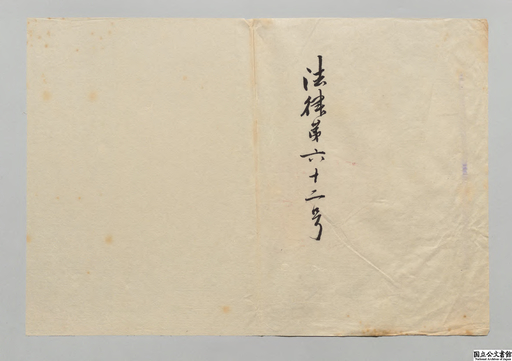 法律第六十二号
国立公文書館
National Archives of Japan